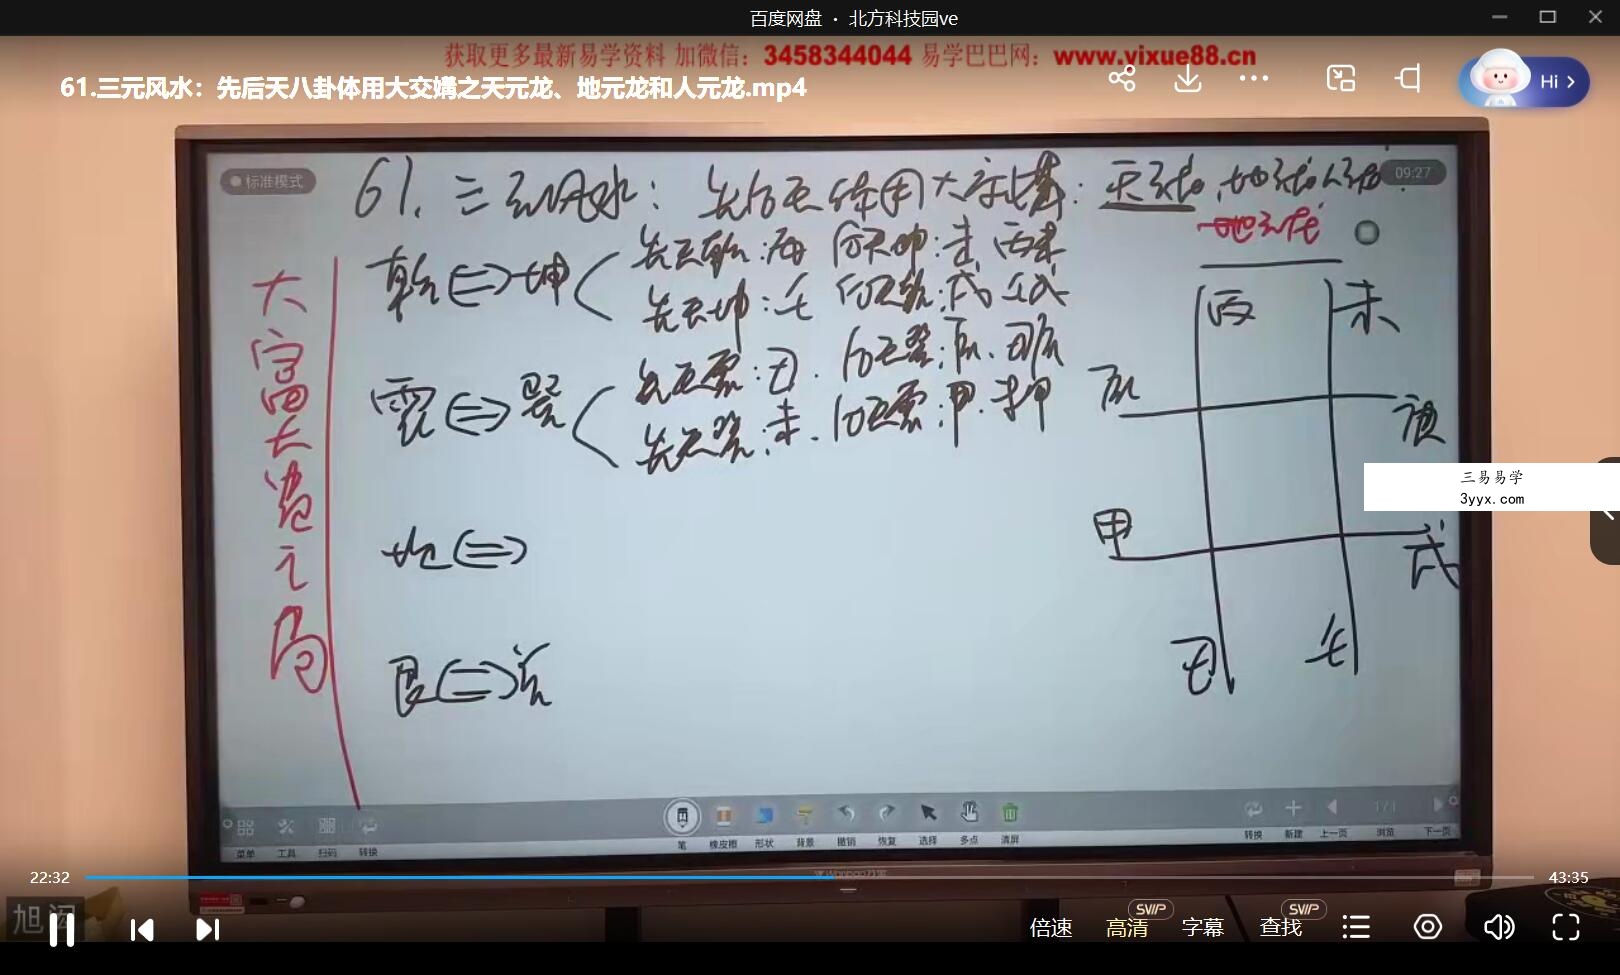 百度网盘 · 北方科技园ve
获取更多最新易学资料 加微信：3458344044 易学巴巴网：www.yixue88.cn
61.三元风水：先后天八卦体用大交媾之天元龙、地元龙和人元龙.mp4
Hi
标准模式
09:27
61.三元风水：先后天体用大交媾：天元龙,地元龙人元龙.
地元龙
大富大贵之局
乾⇔坤
先天乾:丙 后天坤:未 丙未
先天坤:壬 后天乾:戌 壬戌
震⇔巽
先天震:丑. 后天巽:辰. 丑辰
先天巽:未. 后天震:甲. 未甲
丙 未
辰 庚
甲 戌
丑 壬
艮⇔兑
三易易学
3yyx.com
菜单 工具 扫码 转换
笔 橡皮擦 形状 背景 撤销 恢复 选择 多点 清屏
转换 新建 上一页 浏览 下一页
1/1
22:32
43:35
倍速 高清 SVIP 字幕 查找 SVIP